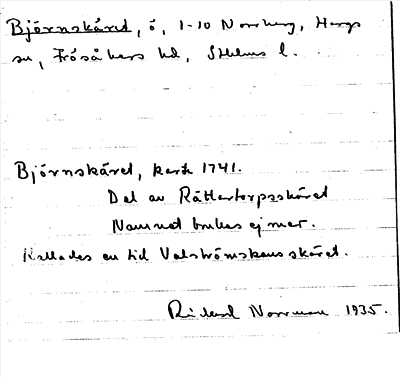 Björnskäret, ö, 1-10 Norrberg, Hargs
sn, Frösåkers hd, Sthlms l.
Björnskäret, karta 1741.
Del av Rättartorpsskäret
Namnet brukas ej mer.
Kallades en tid Valströmskans skäret.
Rickard Norrman 1935.